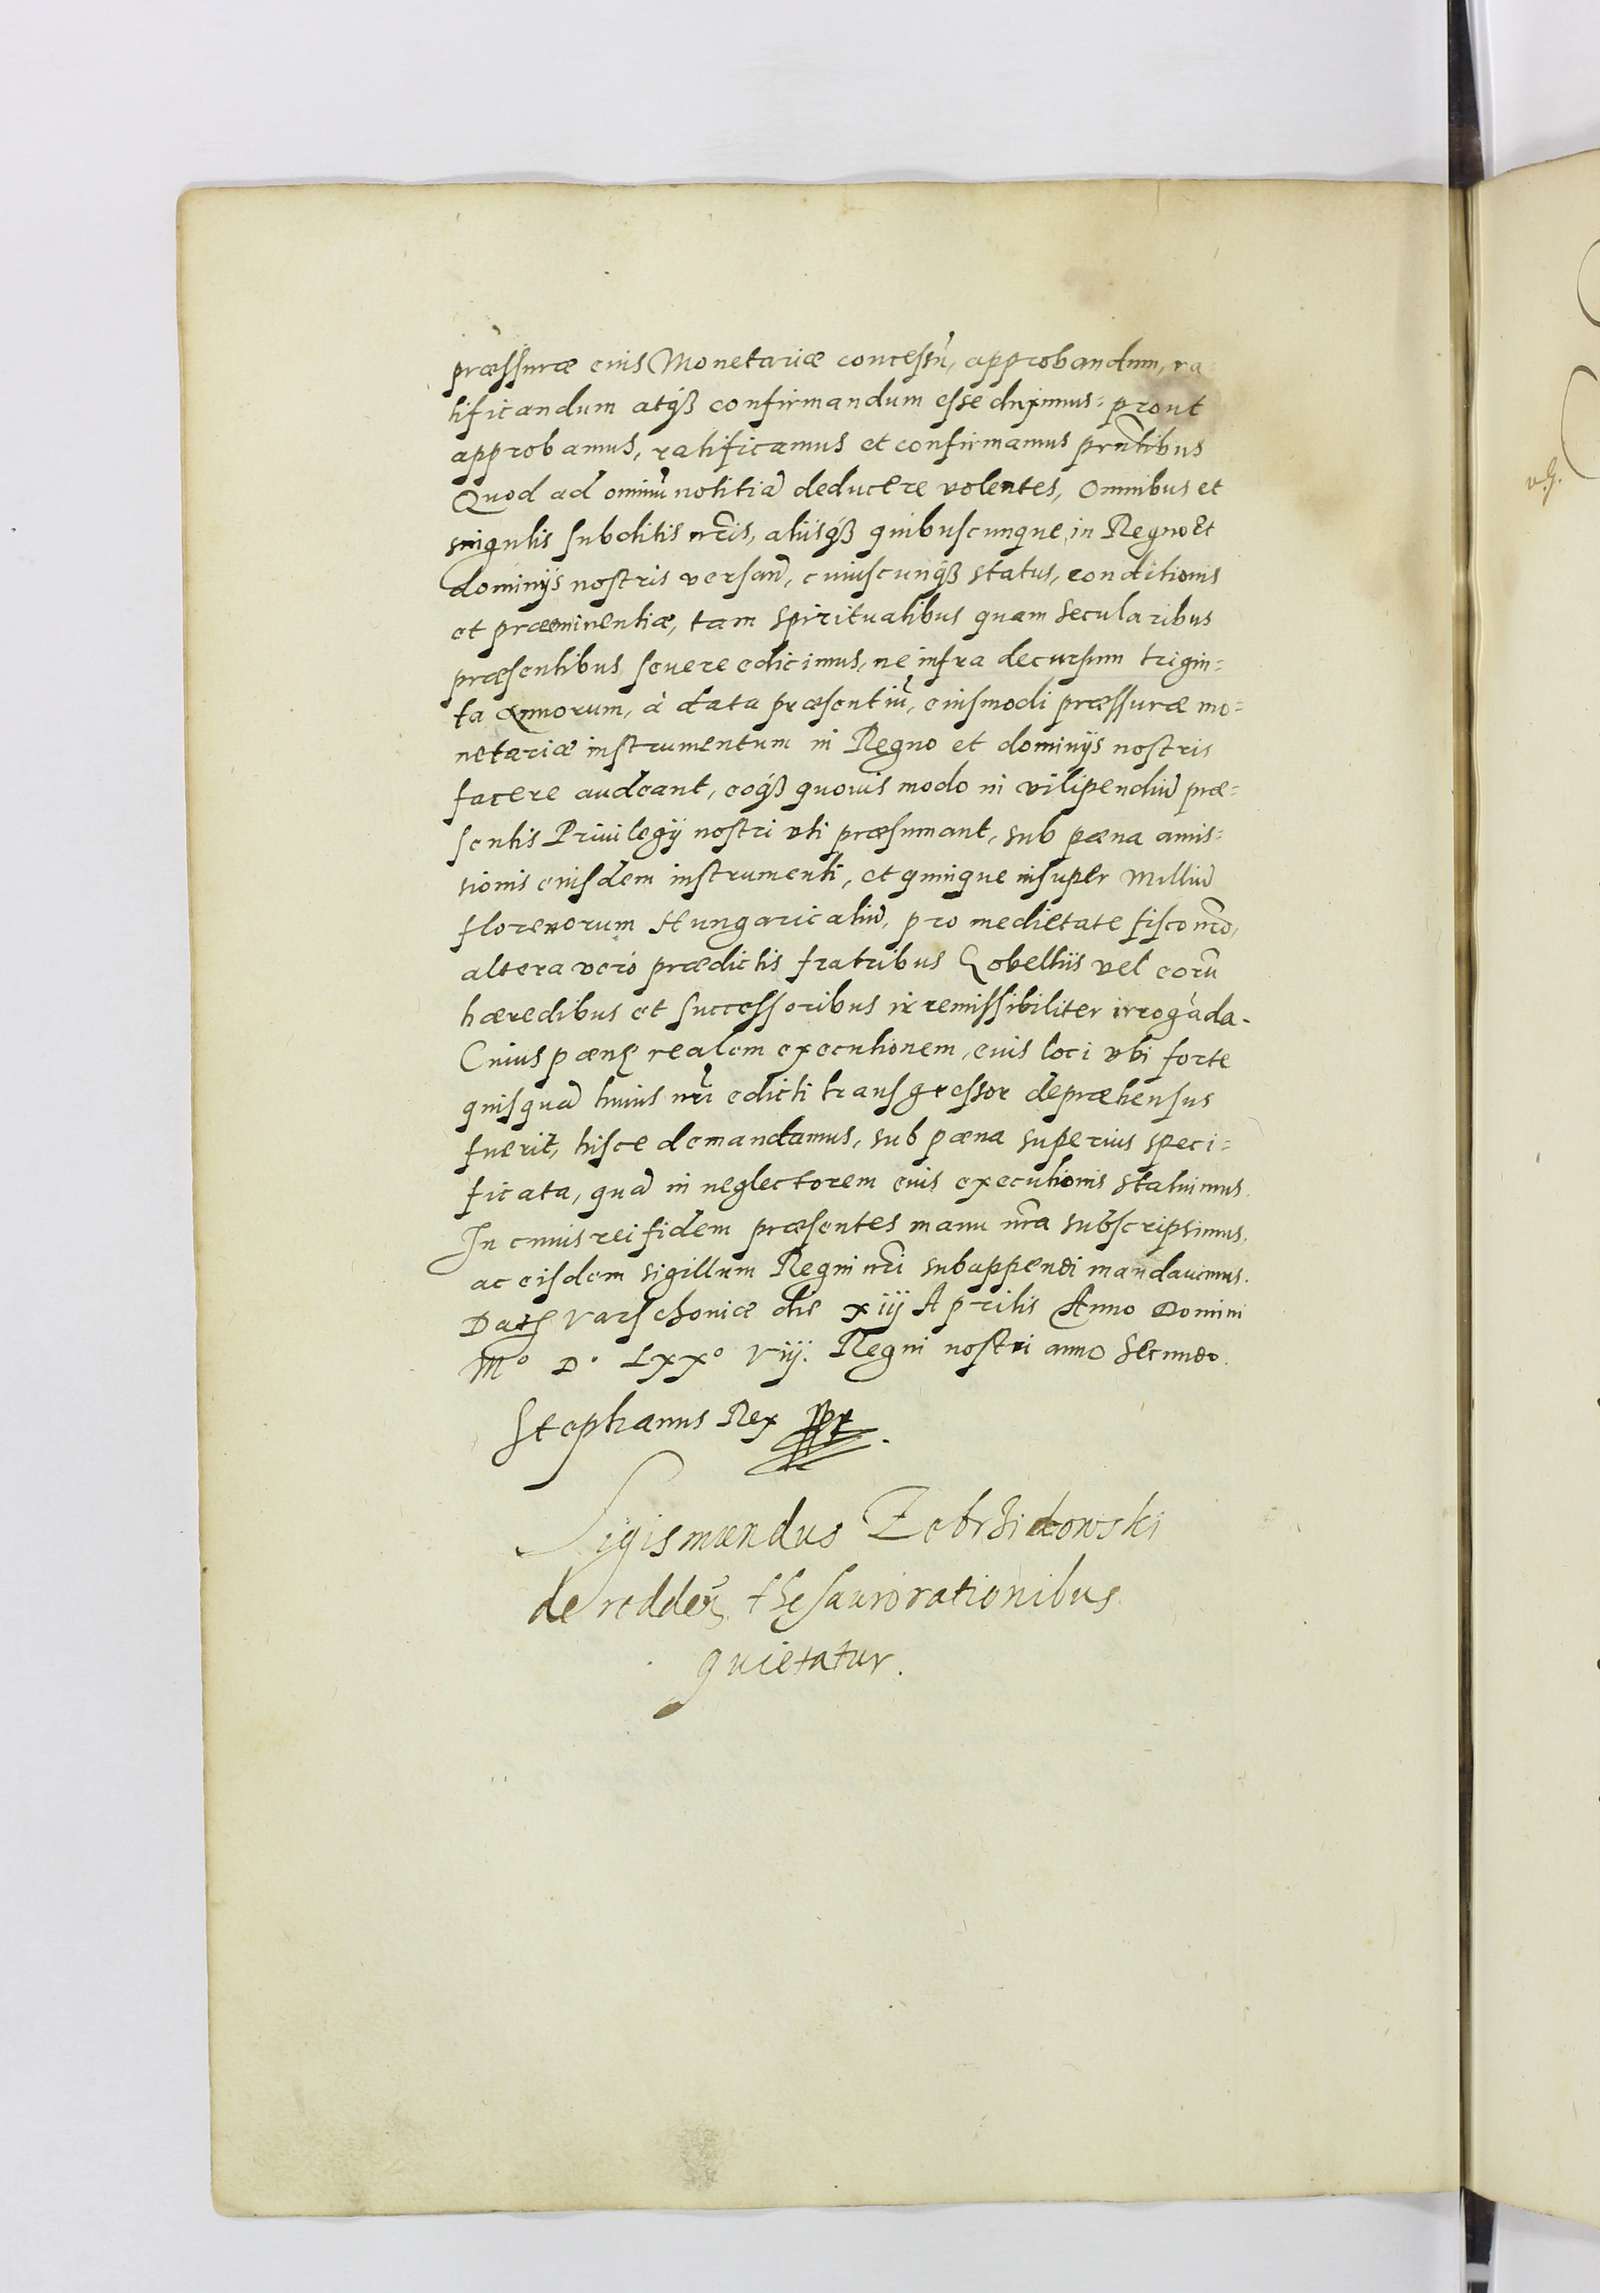 præssuræ eius Monetariæ concessũ, approbandum, ra-
tificandum atqȝ confirmandum esse duximus: prout
approbamus, ratificamus et confirmamus prñtibus
Quod ad omniũ notitiã deducere volentes, Omnibus et
singulis subditis nr̃is, aliisqȝ quibuscunque in Regno et
dominijs nostris versañ, cuiuscunqȝ status, conditionis
et præeminentiæ, tam spiritualibus quam secularibus
præsentibus seuere edicimus, ne infra decursum trigin=
ta Annorum, à data præsentiũ, eiusmodi præssuræ mo=
netariæ instrumentum in Regno et dominijs nostris
facere audeant, eoqȝ quouis modo in vilipendiũ præ=
sentis Priuilegij nostri vti præsumant, sub pæna amis=
sionis eiusdem instrumenti, et quinque insuper milliũ
florenorum Hungaricaliũ, pro medietate fisco nr̃o,
altera vero prædictis fratribus Gobelliis vel eorũ
hæredibus et successoribus irremissibiliter irrogãda.
Cuius pænę realem executionem, eius loci vbi forte
quisquã huius nr̃i edicti transgressor depræhensus
fuerit, hisce demandamus, sub pæna superius speci=
ficata, quã in neglectorem eius executionis statuimus.
In cuius rei fidem præsentes manu nr̃a subscripsimus,
ac eisdem sigillum Regni nr̃i subappendi mandauimus.
Datȩ Varschouiæ die xiij Aprilis Anno Domini
Mº Dº Lxxº viij. Regni nostri anno Secundo.
Stephanus Rex
Sigismundus Zebrzidowski
de redderȩ thesauro rationibus
quietatur.